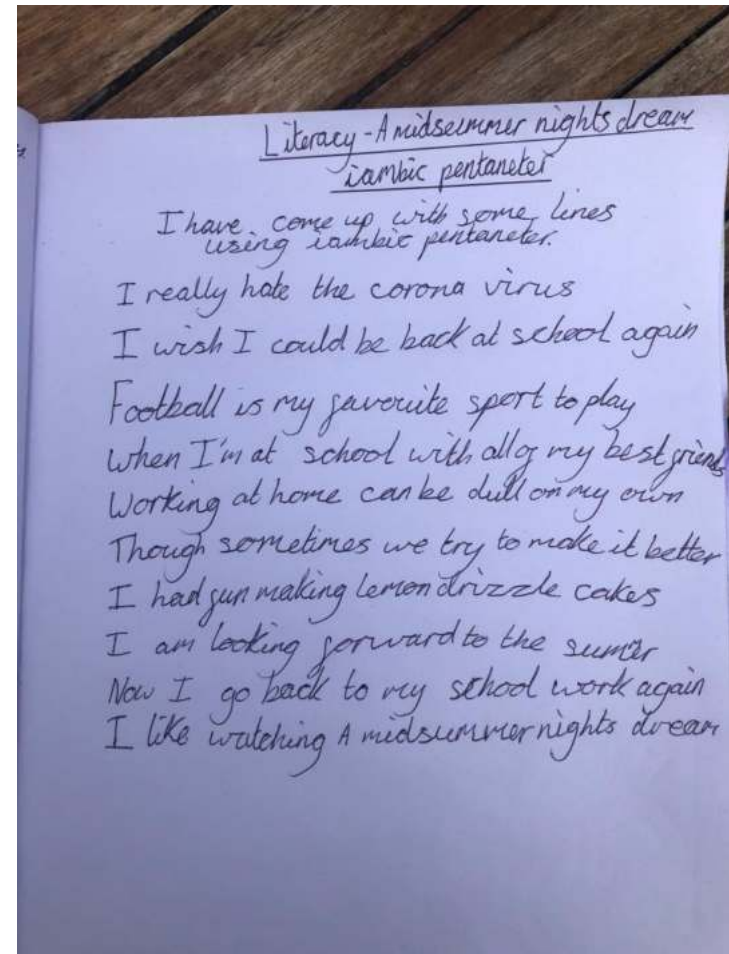 Literacy - A midsummer nights dream
iambic pentaneter
I have come up with some lines
using iambic pentaneter.
I really hate the corona virus
I wish I could be back at school again
Football is my favouite sport to play
When I'm at school with all of my best friends
Working at home can be dull on my own
Though sometimes we try to make it better
I had fun making lemon drizzle cakes
I am looking forward to the sumer
Now I go back to my school work again
I like watching A midsummer nights dream